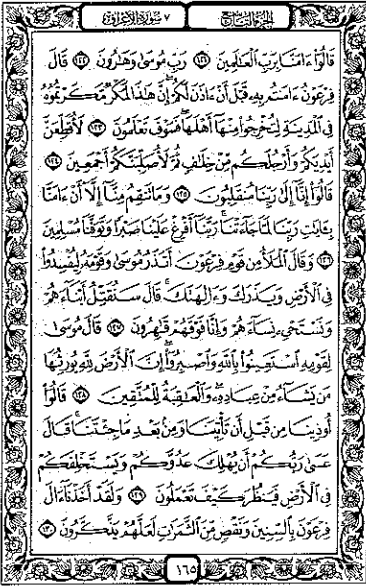 الجزء التاسع ٧ سورة الأعراف
قَالُوٓا۟ ءَامَنَّا بِرَبِّ ٱلْعَـٰلَمِينَ ۝١٢١ رَبِّ مُوسَىٰ وَهَـٰرُونَ ۝١٢٢ قَالَ
فِرْعَوْنُ ءَامَنتُم بِهِۦ قَبْلَ أَنْ ءَاذَنَ لَكُمْ إِنَّ هَـٰذَا لَمَكْرٌ مَّكَرْتُمُوهُ
فِى ٱلْمَدِينَةِ لِتُخْرِجُوا۟ مِنْهَآ أَهْلَهَا فَسَوْفَ تَعْلَمُونَ ۝١٢٣ لَأُقَطِّعَنَّ
أَيْدِيَكُمْ وَأَرْجُلَكُم مِّنْ خِلَـٰفٍ ثُمَّ لَأُصَلِّبَنَّكُمْ أَجْمَعِينَ ۝١٢٤
قَالُوٓا۟ إِنَّآ إِلَىٰ رَبِّنَا مُنقَلِبُونَ ۝١٢٥ وَمَا تَنقِمُ مِنَّآ إِلَّآ أَنْ ءَامَنَّا
بِـَٔايَـٰتِ رَبِّنَا لَمَّا جَآءَتْنَا رَبَّنَآ أَفْرِغْ عَلَيْنَا صَبْرًا وَتَوَفَّنَا مُسْلِمِينَ
۝١٢٦ وَقَالَ ٱلْمَلَأُ مِن قَوْمِ فِرْعَوْنَ أَتَذَرُ مُوسَىٰ وَقَوْمَهُۥ لِيُفْسِدُوا۟
فِى ٱلْأَرْضِ وَيَذَرَكَ وَءَالِهَتَكَ قَالَ سَنُقَتِّلُ أَبْنَآءَهُمْ
وَنَسْتَحْىِۦ نِسَآءَهُمْ وَإِنَّا فَوْقَهُمْ قَـٰهِرُونَ ۝١٢٧ قَالَ مُوسَىٰ
لِقَوْمِهِ ٱسْتَعِينُوا۟ بِٱللَّهِ وَٱصْبِرُوٓا۟ إِنَّ ٱلْأَرْضَ لِلَّهِ يُورِثُهَا
مَن يَشَآءُ مِنْ عِبَادِهِۦ وَٱلْعَـٰقِبَةُ لِلْمُتَّقِينَ ۝١٢٨ قَالُوٓا۟
أُوذِينَا مِن قَبْلِ أَن تَأْتِيَنَا وَمِنۢ بَعْدِ مَا جِئْتَنَا قَالَ
عَسَىٰ رَبُّكُمْ أَن يُهْلِكَ عَدُوَّكُمْ وَيَسْتَخْلِفَكُمْ
فِى ٱلْأَرْضِ فَيَنظُرَ كَيْفَ تَعْمَلُونَ ۝١٢٩ وَلَقَدْ أَخَذْنَآ ءَالَ
فِرْعَوْنَ بِٱلسِّنِينَ وَنَقْصٍ مِّنَ ٱلثَّمَرَٰتِ لَعَلَّهُمْ يَذَّكَّرُونَ ۝١٣٠
١٦٥